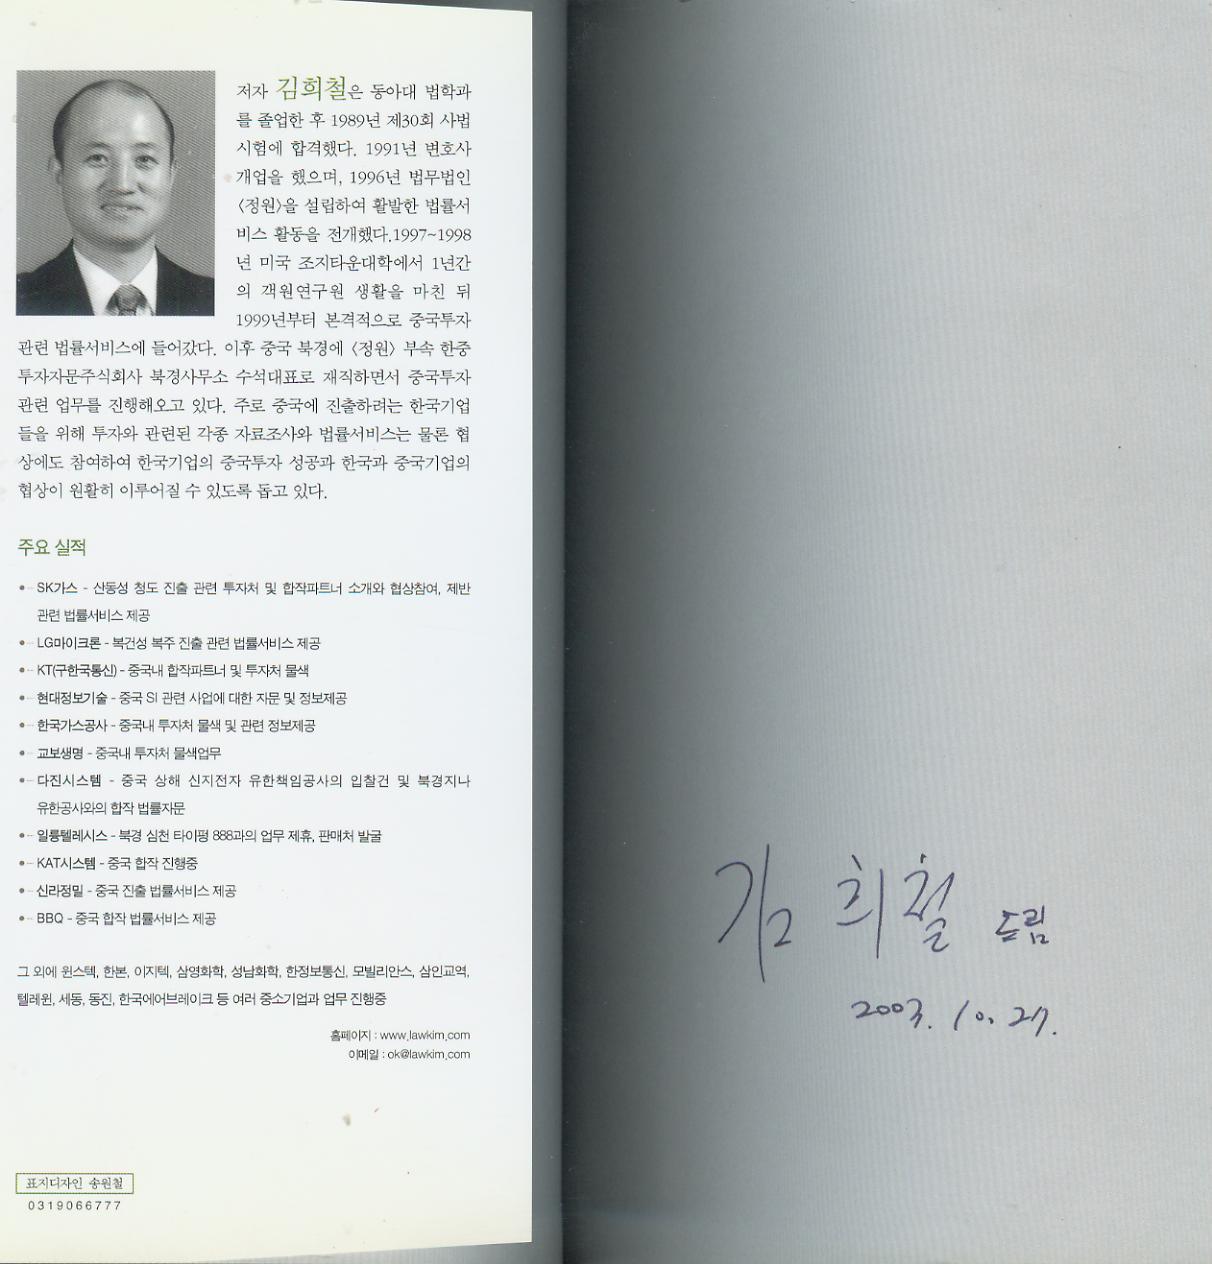 저자 김희철은 동아대 법학과
를 졸업한 후 1989년 제30회 사법
시험에 합격했다. 1991년 변호사
개업을 했으며, 1996년 법무법인
〈정원〉을 설립하여 활발한 법률서
비스 활동을 전개했다.1997~1998
년 미국 조지타운대학에서 1년간
의 객원연구원 생활을 마친 뒤
1999년부터 본격적으로 중국투자
관련 법률서비스에 들어갔다. 이후 중국 북경에 〈정원〉 부속 한중
투자자문주식회사 북경사무소 수석대표로 재직하면서 중국투자
관련 업무를 진행해오고 있다. 주로 중국에 진출하려는 한국기업
들을 위해 투자와 관련된 각종 자료조사와 법률서비스는 물론 협
상에도 참여하여 한국기업의 중국투자 성공과 한국과 중국기업의
협상이 원활히 이루어질 수 있도록 돕고 있다.
주요 실적
● SK가스 - 산동성 청도 진출 관련 투자처 및 합작파트너 소개와 협상참여, 제반
관련 법률서비스 제공
● LG마이크론 - 복건성 복주 진출 관련 법률서비스 제공
● KT(구한국통신) - 중국내 합작파트너 및 투자처 물색
● 현대정보기술 - 중국 SI 관련 사업에 대한 자문 및 정보제공
● 한국가스공사 - 중국내 투자처 물색 및 관련 정보제공
● 교보생명 - 중국내 투자처 물색업무
● 다진시스템 - 중국 상해 신지전자 유한책임공사의 입찰건 및 북경지나
유한공사와의 합작 법률자문
● 일륭텔레시스 - 북경 심천 타이펑 888과의 업무 제휴, 판매처 발굴
● KAT시스템 - 중국 합작 진행중
● 신라정밀 - 중국 진출 법률서비스 제공
● BBQ - 중국 합작 법률서비스 제공
그 외에 윈스텍, 한본, 이지텍, 삼영화학, 성남화학, 한정보통신, 모빌리안스, 삼인교역,
텔레윈, 세동, 동진, 한국에어브레이크 등 여러 중소기업과 업무 진행중
홈페이지 : www.lawkim.com
이메일 : ok@lawkim.com
표지디자인 송원철
0319066777
김희철 드림
2003. 10. 27.